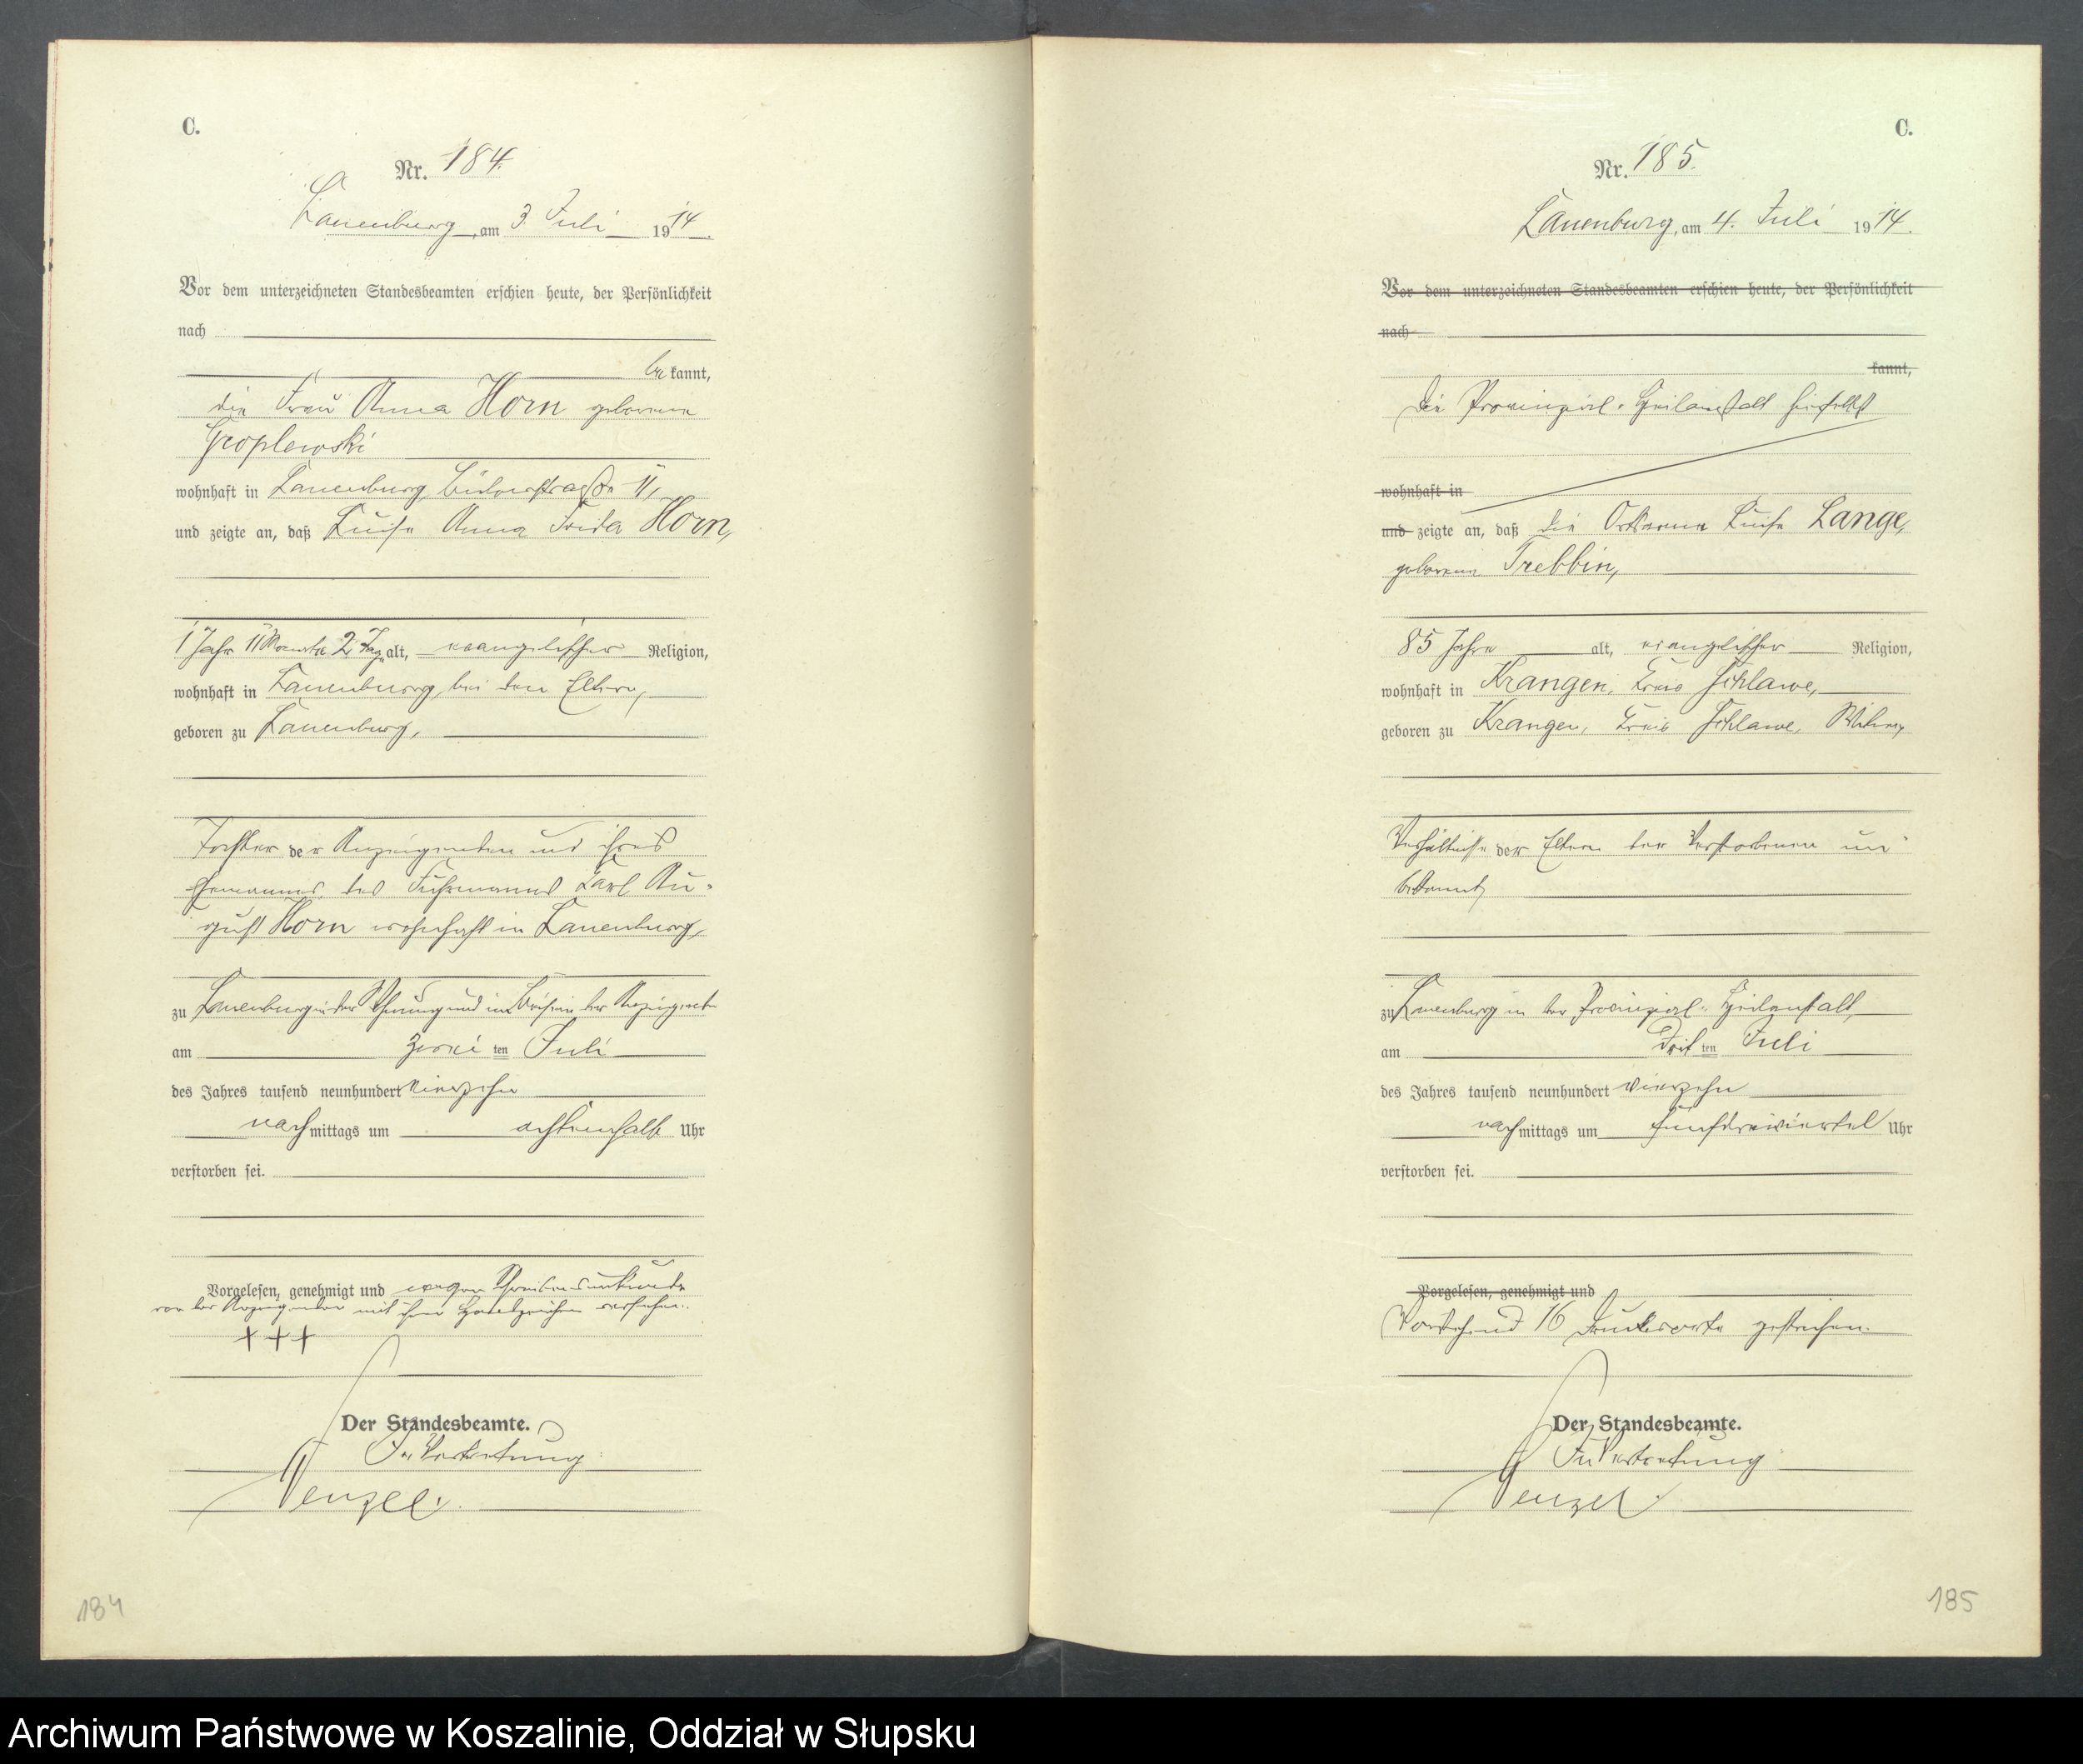 C.
Nr. 184.
Lauenburg, am 3. Juli 1914.
Vor dem unterzeichneten Standesbeamten erschien heute, der Persönlichkeit
nach
bekannt,
die Frau Anna Horn geborene
Groplewski
wohnhaft in Lauenburg, Bütowerstraße 11,
und zeigte an, daß Luise Anna Frida Horn,
1 Jahr 11 Monate 2 Tage alt, evangelischer Religion,
wohnhaft in Lauenburg bei den Eltern,
geboren zu Lauenburg,
Tochter der Anzeigenden und ihres
Ehemannes des Fuhrmanns Karl Au-
gust Horn wohnhaft in Lauenburg,
zu Lauenburg in der Wohnung und im Beisein der Anzeigenden
am zweiten Juli
des Jahres tausend neunhundert vierzehn
nachmittags um achteinhalb Uhr
verstorben sei.
Vorgelesen, genehmigt und wegen Schreibensunkunde
von der Anzeigenden mit ihrem Handzeichen versehen.
+++
Der Standesbeamte.
In Vertretung:
Wenzel.
184
C.
Nr. 185.
Lauenburg, am 4. Juli 1914.
Vor dem unterzeichneten Standesbeamten erschien heute, der Persönlichkeit
nach
kannt,
Die Provinzial-Heilanstalt hierselbst
wohnhaft in
und zeigte an, daß die Ortsarme Luise Lange,
geborene Trebbin,
85 Jahre alt, evangelischer Religion,
wohnhaft in Krangen, Kreis Schlawe,
geboren zu Krangen, Kreis Schlawe, Witwe,
Verhältnisse der Eltern der Verstorbenen un-
bekannt,
zu Lauenburg in der Provinzial-Heilanstalt,
am dritten Juli
des Jahres tausend neunhundert vierzehn
nachmittags um fünfdreiviertel Uhr
verstorben sei.
Vorgelesen, genehmigt und
Vorstehend 16 Druckworte gestrichen.
Der Standesbeamte.
In Vertretung:
Wenzel.
185
Archiwum Państwowe w Koszalinie, Oddział w Słupsku